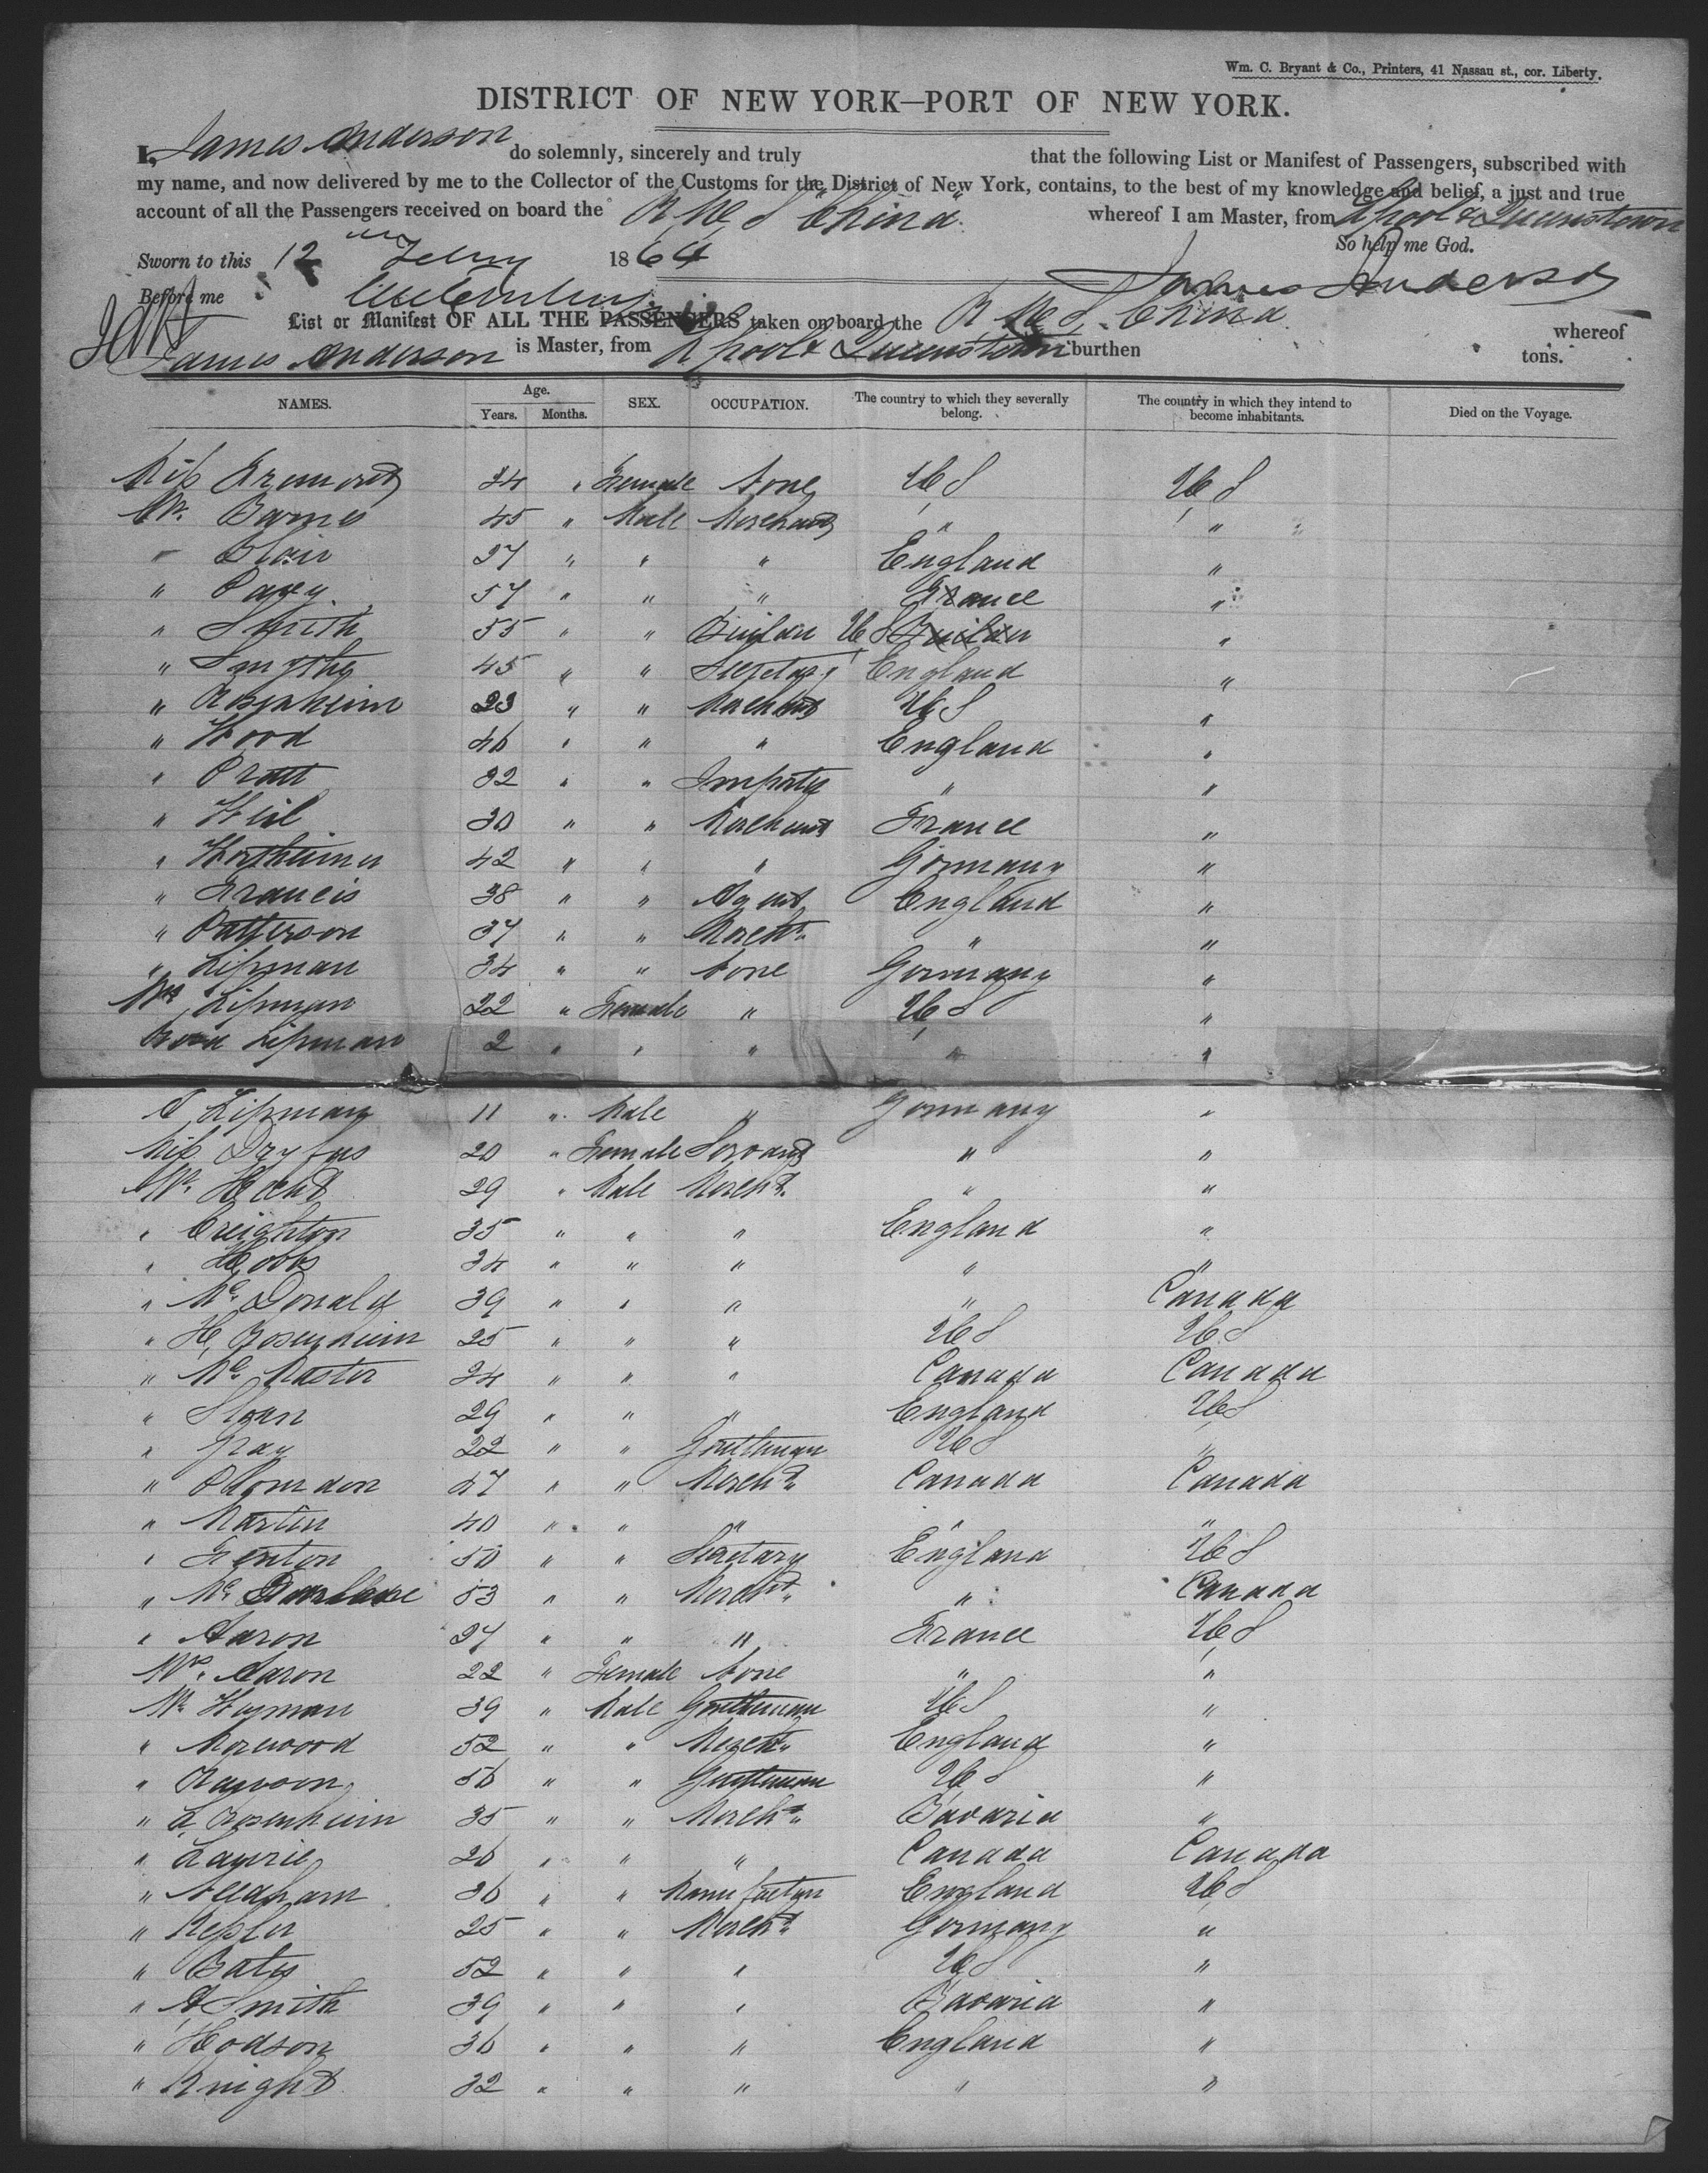 Wm. C. Bryant & Co., Printers, 41 Nassau st., cor. Liberty.
DISTRICT OF NEW YORK—PORT OF NEW YORK.
I, James Anderson do solemnly, sincerely and truly that the following List or Manifest of Passengers, subscribed with
my name, and now delivered by me to the Collector of the Customs for the District of New York, contains, to the best of my knowledge and belief, a just and true
account of all the Passengers received on board the R M S "China" whereof I am Master, from Lpool & Queenstown
So help me God.
Sworn to this 12 Febry 1864
James Anderson
Before me
List or Manifest OF ALL THE PASSENGERS taken on board the R M S. China whereof
James Anderson is Master, from Lpool & Queenstown burthen tons.
NAMES. Age. Years. Months. SEX. OCCUPATION. The country to which they severally belong. The country in which they intend to become inhabitants. Died on the Voyage.
Miss 24 " Female None U S U S
Mr. Barnes 45 " Male Merchant " "
" Blair 27 " " " England "
" 57 " " " France "
" Smith 55 " " Builder U S Builder "
" Smythe 45 " " Secretary England "
" Rosenheim 23 " " Merchant U S "
" Wood 46 " " " England "
" Pratt 32 " " " "
" Weil 30 " " Merchant France "
" Wertheimer 42 " " " Germany "
" Francis 38 " " Agent England "
" Patterson 37 " " Mercht. " "
" Lipman 34 " " None Germany "
Mrs Lipman 22 " Female " U S "
Lipman 2 " " " " "
Lipman 11 " Male " Germany "
Miss Dryfus 20 " Female Servant " "
Mr. Hecht 29 " Male Mercht. " "
" Creighton 35 " " " England "
" Hobbs 34 " " " " "
" Mc Donald 39 " " " " Canada
" H. Rosenheim 25 " " " U S U S
" Mc Master 24 " " " Canada Canada
" Sloan 29 " " " England U S
" Gray 22 " " Gentleman U S "
" 47 " " Mercht. Canada Canada
" Martin 40 " " " " "
" Fenton 50 " " Secretary England U S
" Mc 53 " " Mercht. " Canada
" Aaron 27 " " " France U S
Mrs. Aaron 22 " Female None " "
Mr Hyman 39 " Male Gentleman U S "
" Morewood 52 " " Mercht. England "
" 56 " " Gentleman U S "
" L. Rosenheim 35 " " Mercht. Bavaria "
" Laurie 26 " " " Canada Canada
" Needham 36 " " England U S
" Kepler 25 " " Mercht. Germany "
" Bates 52 " " " U S "
" A Smith 39 " " " Bavaria "
" Hodson 36 " " " England "
" Knight 32 " " " " "